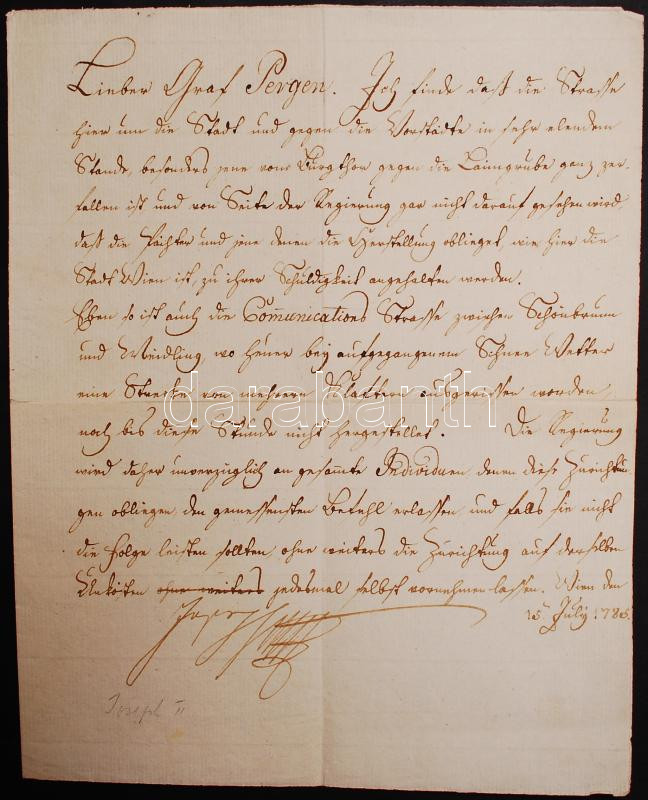 Lieber Graf Pergen. Ich finde daß die Strasse
hier um die Stadt und gegen die Vorstädte in sehr elendem
Stande, besonders jene vom Burgthor gegen die Laimgrube ganz zer-
fallen ist und von Seite der Regierung gar nicht darauf gesehen wird,
daß die Pächter und jene denen die Herstellung obliegt, wie hier die
Stadt Wien ist, zu ihrer Schuldigkeit angehalten werden.
Eben so ist auch die Communications Strasse zwischen Schönbrunn
und Meidling, wo heuer bey aufgegangenem Schnee Wetter
eine Strecke von mehrern Klaftern ausgerissen worden,
noch bis diese Stunde nicht hergestellet. Die Regierung
wird daher unverzüglich an gesammte Individuen denen diese Zurichtun-
gen obliegen, den gemessensten Befehl erlassen, und falls sie nicht
die Folge leisten sollten, ohne weiters die Zurichtung auf derselben
Unkösten ohne weiters jedesmal selbst vornehmen lassen. Wien den
15 July 1785.
Joseph
Joseph II
darabanth